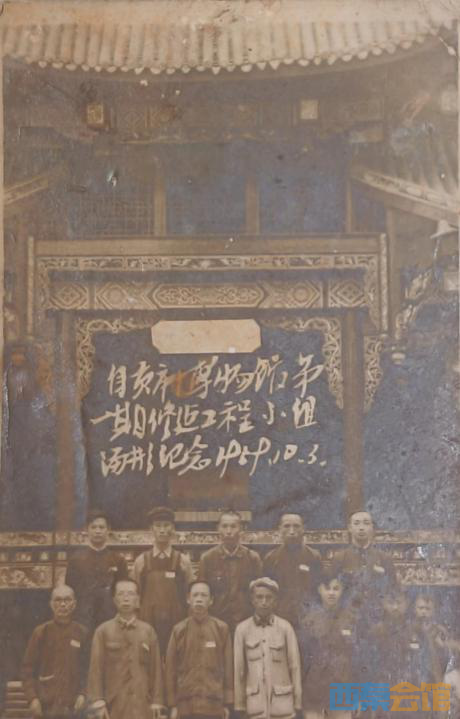 自贡市博物馆第
一期修建工程小组
影纪念1959.10.3.
西秦会馆